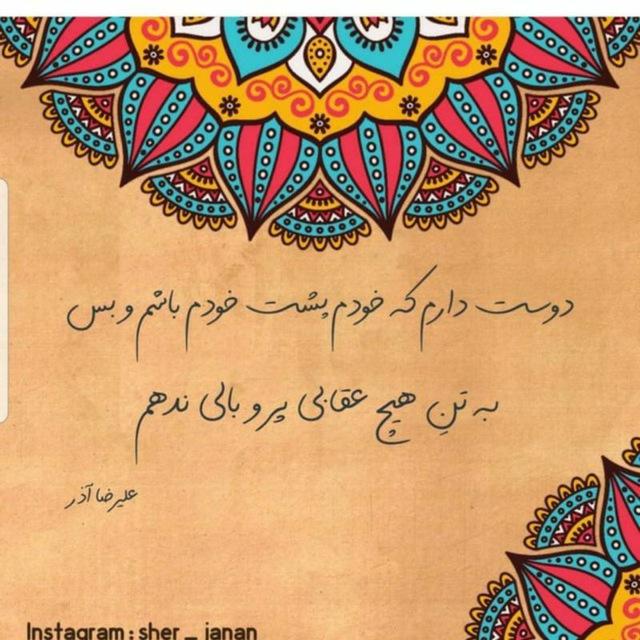 دوست دارم که خودم پشت خودم باشم و بس
به تنِ هیچ عقابی پر و بالی ندهم
علیرضا آذر
Instagram : sher _ janan